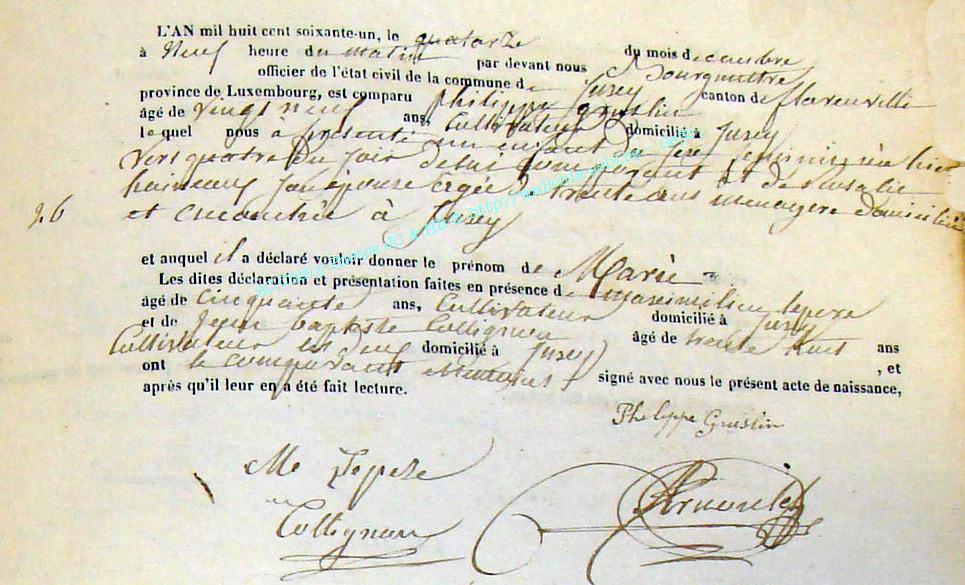 L'AN mil huit cent soixante-un, le quatorze du mois de décembre
à Neuf heure du matin par devant nous Bourgmestre
officier de l'état civil de la commune de Jusey canton de florenville
province de Luxembourg, est comparu Philippe Gruslin
âgé de vingt neuf ans, Cultivateur domicilié à Jusey
lequel nous a présenté un enfant du sexe féminin née hier
vers quatre du soir de lui comparant et de Rosalie
son épouse agée de trente ans menagere domiciliée
26 et encouchée à Jusey
et auquel il a déclaré vouloir donner le prénom de Marie
Les dites déclaration et présentation faites en présence de maximilien lepere
âgé de Cinquante ans, Cultivateur domicilié à Jusey
et de Jean baptiste Collignon âgé de trente huit ans
Cultivateur domicilié à Jusey , et
ont le comparant et signé avec nous le présent acte de naissance,
après qu'il leur en a été fait lecture.
Philippe Gruslin
Me Lepere
Collignon